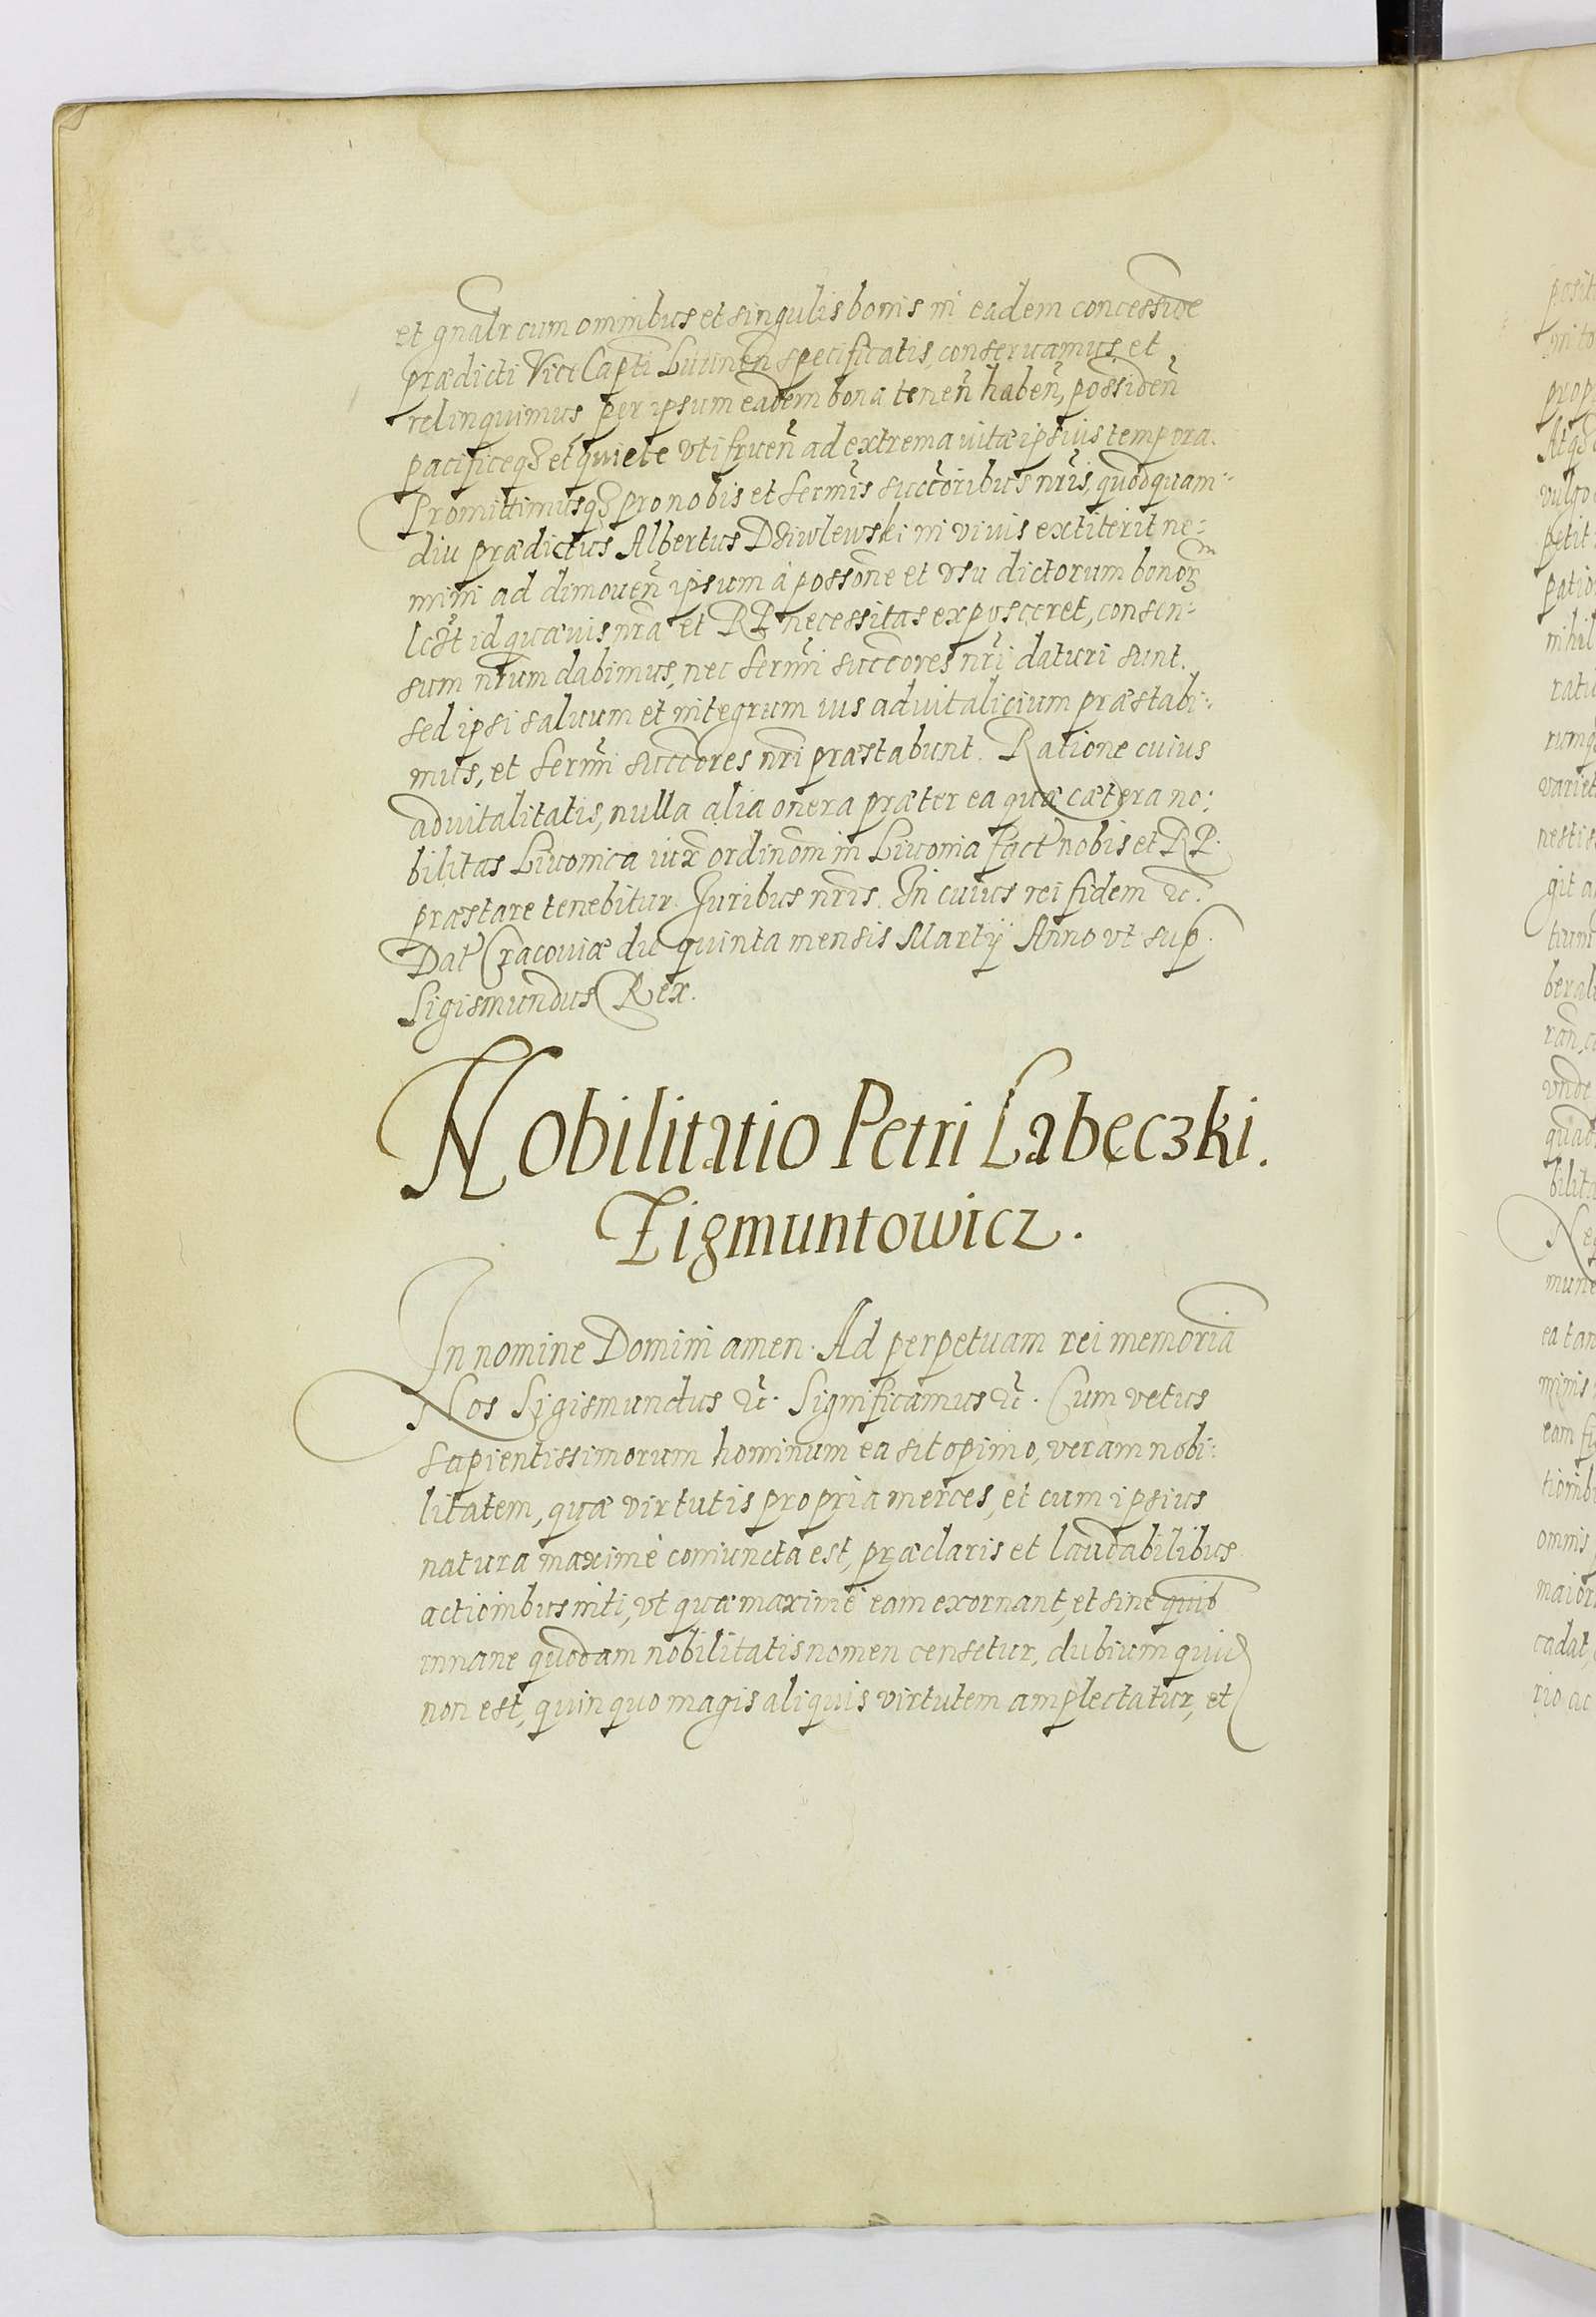 et gnalr cum omnibus et singulis bonis in eadem concessiōe
prædicti Vice Capti Liuinēn specificatis, conseruamus et
relinquimus, per ipsum eadem bona tenen̄ haben̄, possiden̄
pacificeq3 et quiete vti fruen̄ ad extrema vitæ ipsius tempora.
Promittimusq3 pro nobis et sermīs succōribus nr̄is, quod quam-
diu prædictus Albertus Dziwlewski in viuis extiterit ne-
mini ad dimouen̄ ipsum à possōne et vsu dictorum bonor
id quæuis nr̄a et RP necessitas exposceret, consen-
sum nr̄um dabimus, nec sermī succcores nr̄i daturi sunt.
sed ipsi saluum et integrum ius aduitalicium præstabi-
mus, et sermī succcores nr̄i præstabunt. Ratione cuius
aduitalitatis, nulla alia onera præter ea quæ cætera no-
bilitas Liuonica iux̄ ordinōm in Liuonia fact nobis et RP.
præstare tenebitur. Juribus nr̄is. In cuius rei fidem ꝛc̄.
Dat Cracouiæ die quinta mensis Martij Anno vt sup.
Sigismundus Rex.
Nobilitatio Petri Labęczki.
Zigmuntowicz.
In nomine Domini amen. Ad perpetuam rei memoriā
Nos Sigismundus ꝛc̄. Significamus ꝛc̄. Cum vetus
sapientissimorum hominum ea sit opinio, veram nobi-
litatem, quæ virtutis propria merces, et cum ipsius
natura maximè coniuncta est, præclaris et laudabilibus
actionibus niti, vt quæ maximè eam exornant, et sine quib
innane quodam nobilitatis nomen censetur, dubium quid
non est, quin quo magis aliquis virtutem amplectatur, et